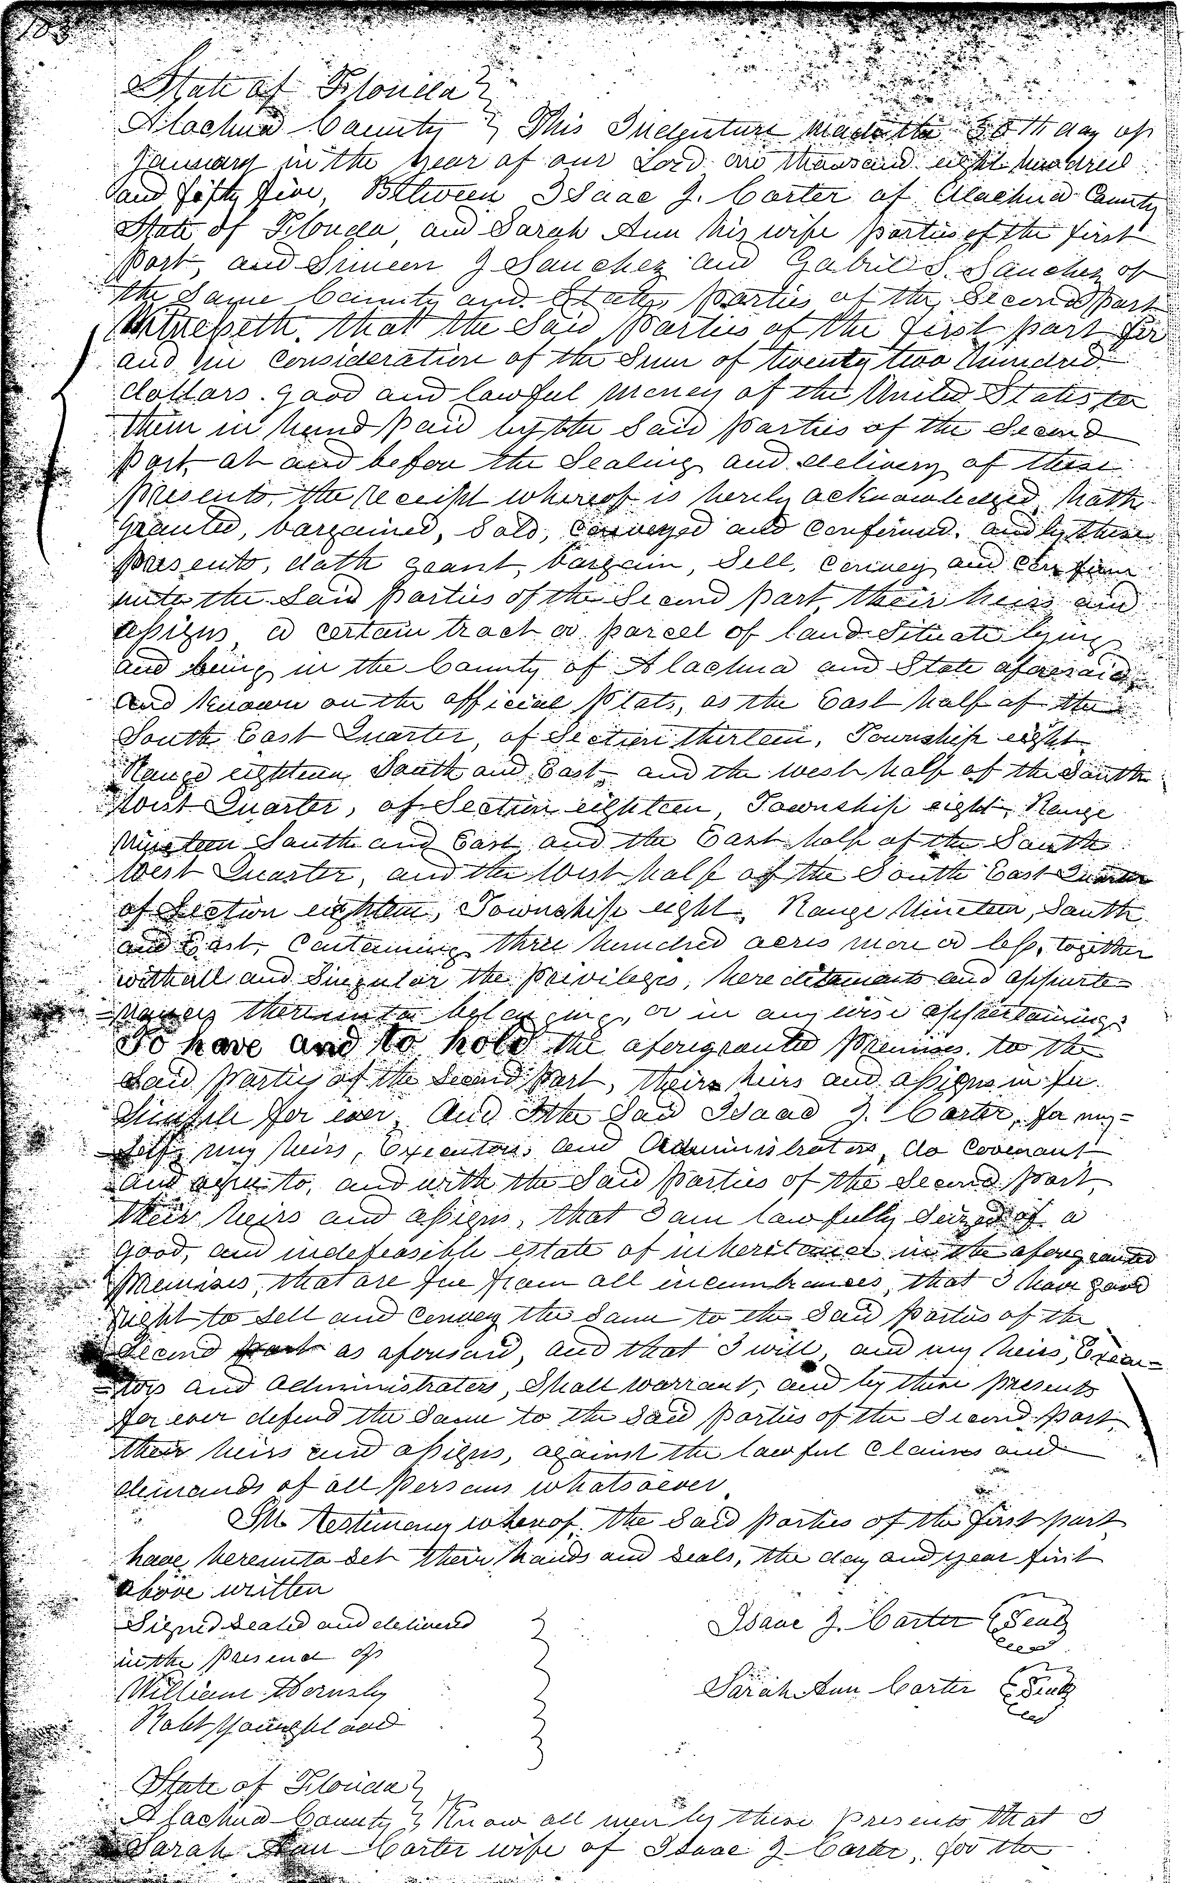 State of Florida }
Alachua County } This Indenture made the 30th day of
January in the year of our Lord one thousand eight hundred
and fifty five, Between Isaac J. Carter of Alachua County
State of Florida, and Sarah Ann his wife parties of the first
part, and Simeon J Sanchez and Gabriel S. Sanchez of
the Same County and State, parties of the Second part
Witnesseth, that the Said parties of the first part for
and in consideration of the Sum of twenty two hundred
dollars. good and lawful money of the United States to
them in hand paid by the Said parties of the Second
part, at and before the Sealing and delivery of these
presents, the receipt whereof is hereby acknowledged, hath
granted, bargained, Sold, conveyed and confirmed. and by these
presents, doth grant, bargain, Sell, convey and confirm
unto the Said parties of the Second part, their heirs and
assigns, a certain tract or parcel of land Situate lying
and being in the County of Alachua and State aforesaid,
and known on the official plats, as the East half of the
South East Quarter, of Section thirteen, Township eight
Range eighteen, South and East, and the west half of the South
West Quarter, of Section eighteen, Township eight, Range
Nineteen South and East, and the East half of the South
West Quarter, and the West half of the South East Quarter
of Section eighteen, Township eight, Range Nineteen, South
and East, Containing three hundred acres more or less, together
with all and Singular the privileges, hereditaments and appurte=
=nances thereunto belonging, or in any wise appertaining:
To have and to hold the aforegranted premises. to the
Said parties of the Second part, their heirs and assigns in fee
Simple for ever, And I the Said Isaac J. Carter, for my=
=self, my heirs, Executors and Administrators, do covenant
and agree to, and with the Said parties of the Second part,
their heirs and assigns, that I am lawfully Seized of a
good, and indefeasible estate of inheritance in the aforegranted
premises, that are free from all incumbrances, that I have good
right to sell and convey the Same to the Said parties of the
Second part as aforesaid, and that I will, and my heirs, Execu=
=tors and Administrators, Shall warrant, and by these presents
for ever defend the Same to the Said parties of the Second part,
their heirs and assigns, against the lawful claims and
demands of all persons whatsoever.
In testimony whereof, the Said parties of the first part
have hereunto set their hands and seals, the day and year first
above written
Signed sealed and delivered } Isaac J. Carter {Seal}
in the presence of
William Hornsby Sarah Ann Carter {Seal}
Robt Youngblood
State of Florida }
Alachua County } Know all men by these presents that I
Sarah Ann Carter wife of Isaac J Carter, for the